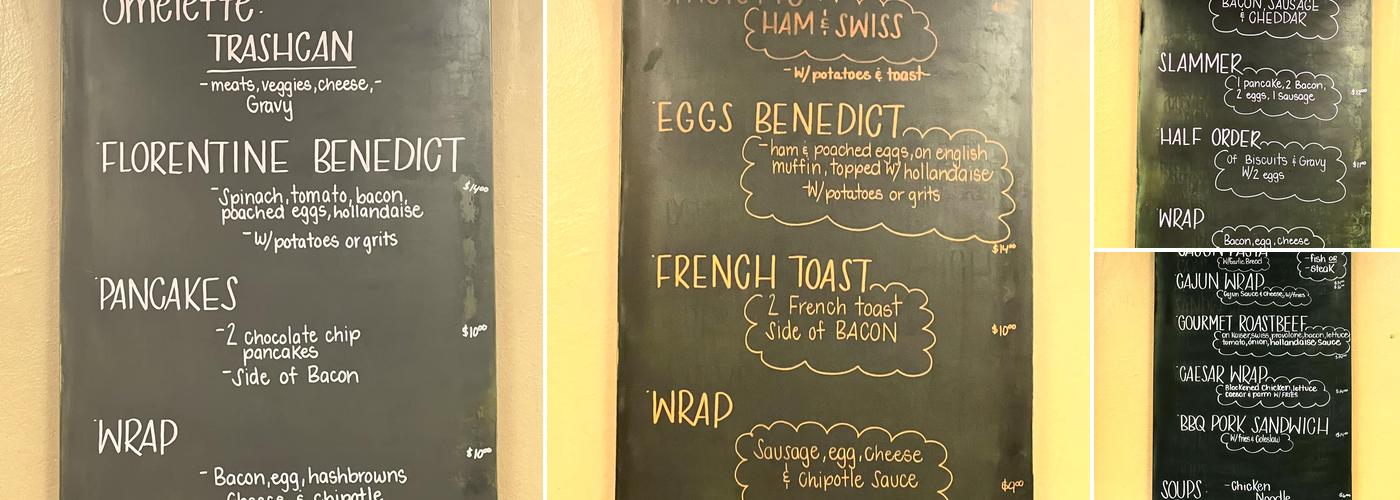 Omelette:
TRASHCAN
- meats, veggies, cheese, -
Gravy
FLORENTINE BENEDICT
$14.00
- Spinach, tomato, bacon,
poached eggs, hollandaise
- W/ potatoes or grits
PANCAKES
- 2 chocolate chip
pancakes
$10.00
- Side of Bacon
WRAP
$10.00
- Bacon, egg, hashbrowns
Cheese & chipotle
HAM & SWISS
- W/ potatoes & toast -
EGGS BENEDICT
- ham & poached eggs, on english
muffin, topped W/ hollandaise
- W/ potatoes or grits
$14.00
FRENCH TOAST
2 French toast
Side of BACON
$10.00
WRAP
Sausage, egg, cheese
& Chipotle Sauce
$9.00
BACON, SAUSAGE
& CHEDDAR
SLAMMER
1 pancake, 2 Bacon,
2 eggs, 1 sausage
HALF ORDER
Of Biscuits & Gravy
W/ 2 eggs
WRAP
Bacon, egg, cheese
W/ Garlic Bread
- fish OR
- steak
CAJUN WRAP
Cajun Sauce & Cheese, W/ fries
GOURMET ROASTBEEF
on Kaiser, swiss, provolone, bacon, lettuce
tomato, onion, hollandaise sauce
CAESAR WRAP
Blackened Chicken, lettuce
caesar & parm W/ FRIES
BBQ PORK SANDWICH
W/ fries & Coleslaw
SOUPS - Chicken
Noodle